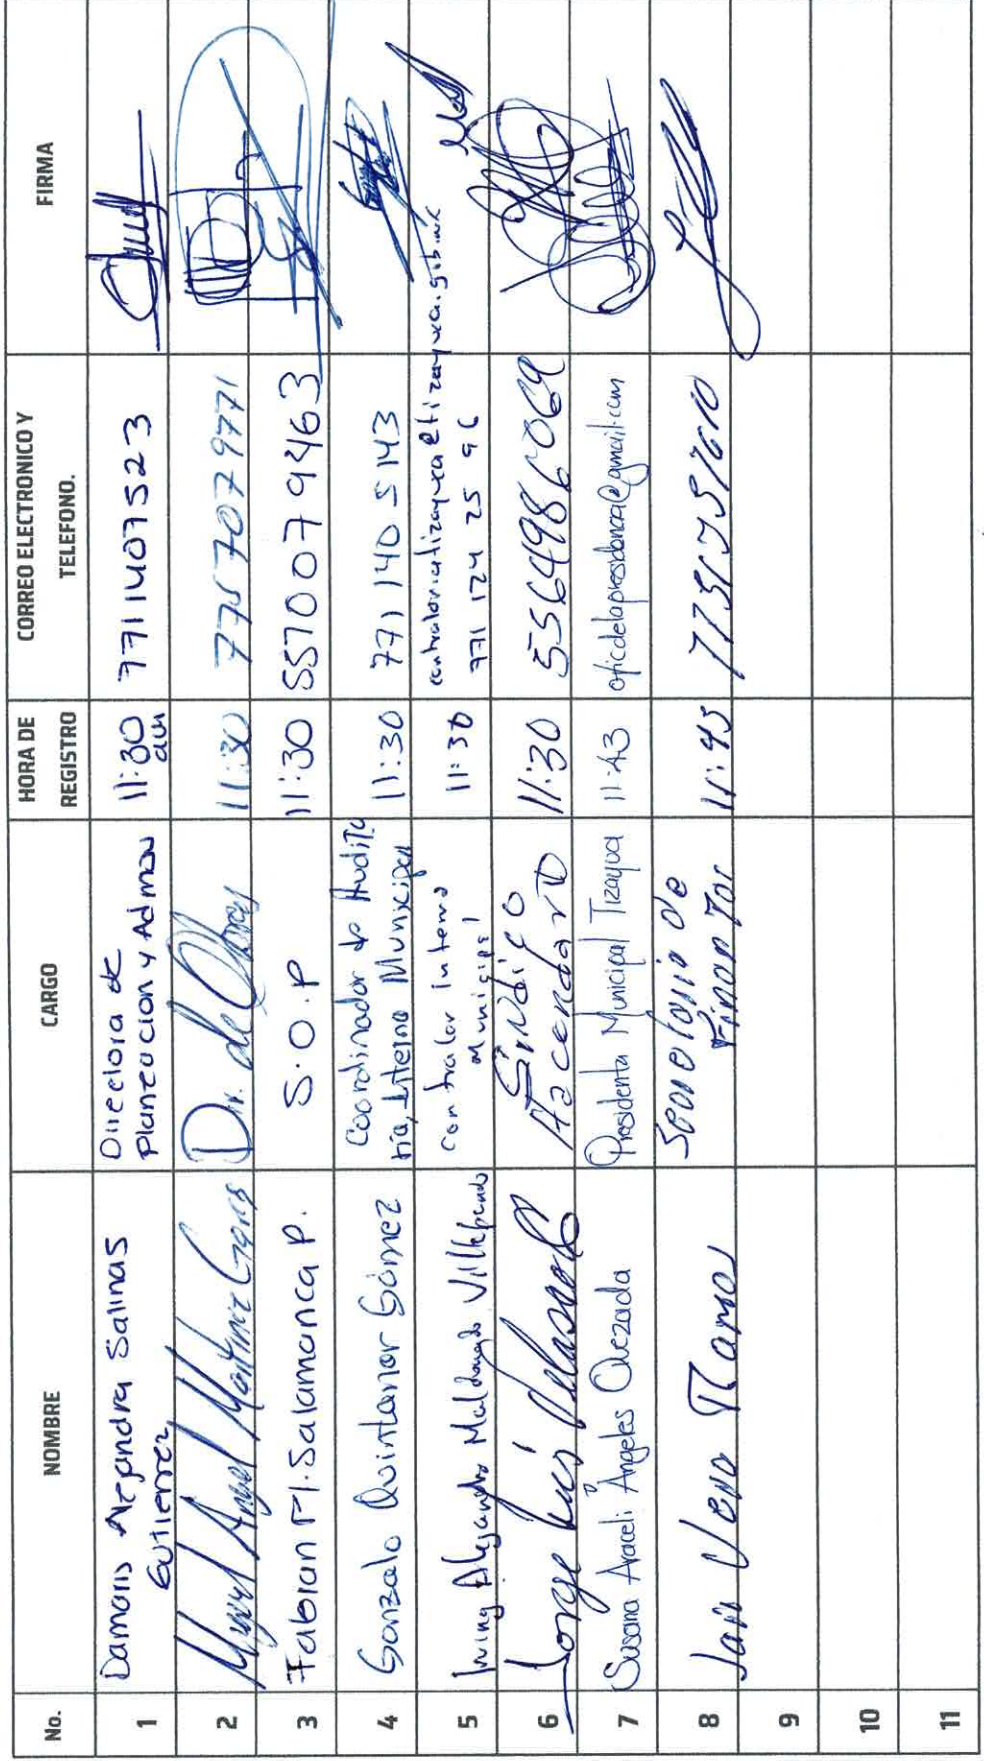 No. NOMBRE CARGO HORA DE REGISTRO CORREO ELECTRONICO Y TELEFONO. FIRMA
1 Damaris Alejandra Salinas Gutierrez Directora de Planeacion y Admon 11:30 am 7711407523
2 Miguel Angel Martinez Dir. de Obras 11:30 7757079771
3 Fabian M. Salamanca P. S.O.P 11:30 5570079463
4 Gonzalo Quintanar Gómez Coordinador de Auditoria, Interno Municipal 11:30 771 140 5143
5 Irving Alejandro Maldonado Villalpando Contralor interno Municipal 11:30 771 124 25 96
6 Jorge Luis Síndico Hacendario 11:30 5564986069
7 Susana Araceli Ángeles Quezada Presidenta Municipal Tizayuca 11:43
8 Vera 11:45
9
10
11